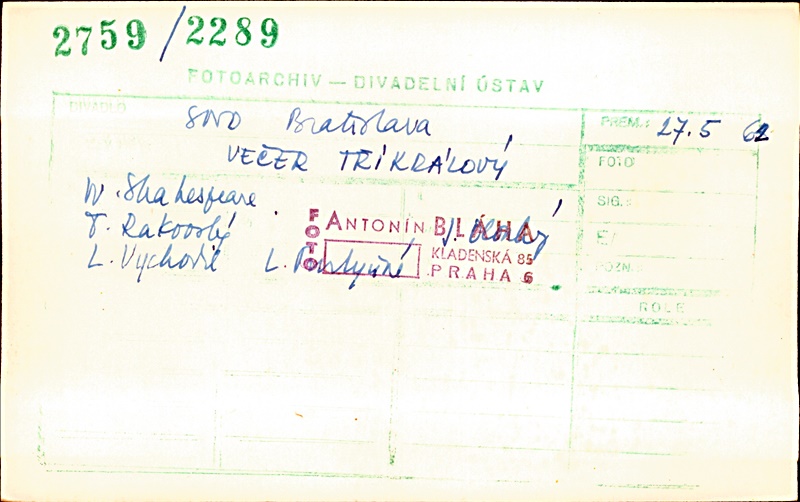 2759/2289
FOTOARCHIV — DIVADELNÍ ÚSTAV
DIVADLO
SND Bratislava
PREM.: 27.5 62
VEČER TŘÍKRÁLOVÝ
FOTO
W. Shakespeare
SIG.:
T. Rakovský
FOTO ANTONÍN BLÁHA
L. Vychodil L.
KLADENSKÁ 85
PRAHA 6
POZN.:
ROLE